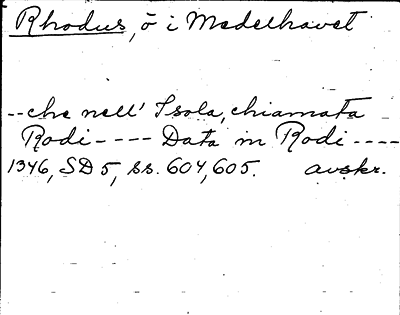 Rhodus, ö i Medelhavet
--che nell' Isola, chiamata
Rodi---- Data in Rodi----
1346, SD 5, ss. 604, 605. avskr.